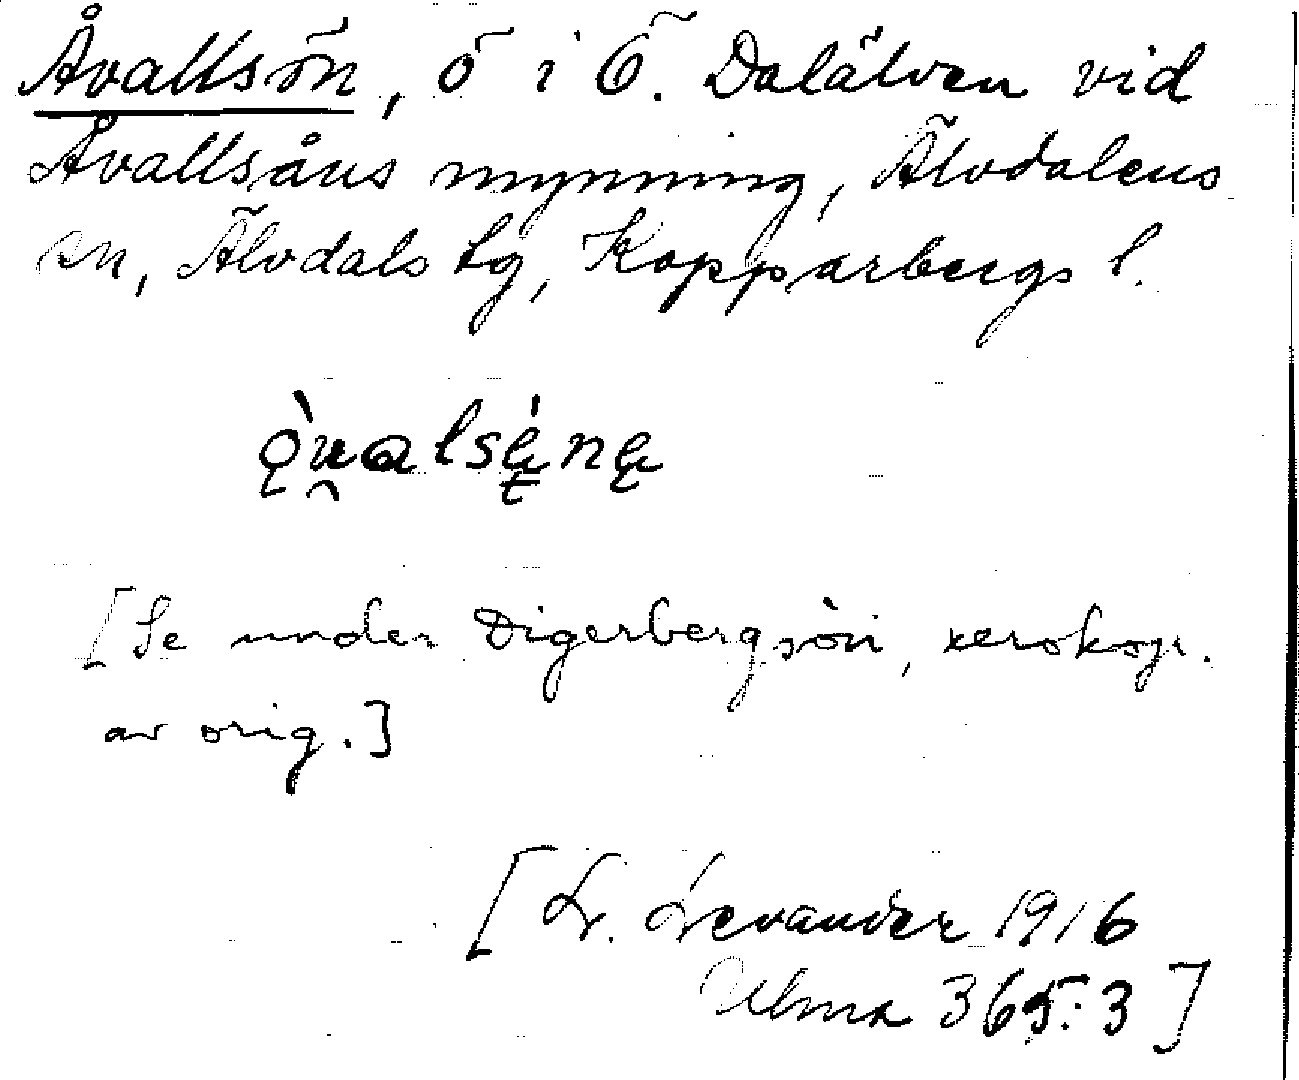 Åvallsön, ö i Ö. Dalälven vid
Åvallsåns mynning, Älvdalens
sn, Älvdals tg, Kopparbergs l.
[Se under Digerbergsön, xerokop.
av orig.]
[L. Levander 1916
Ulma 365:3]